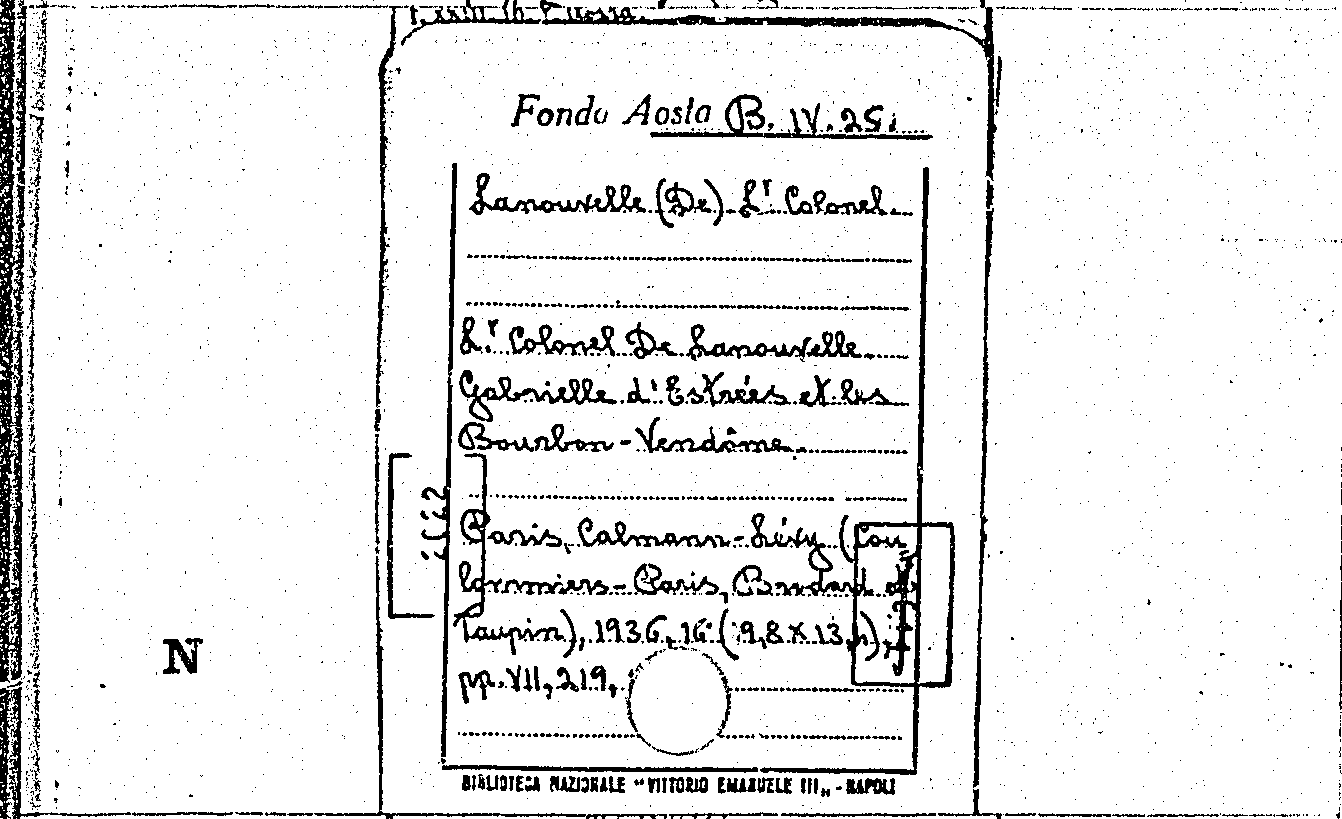 Fondo Aosta B. IV. 25.
Lanouvelle (De) Lr Colonel.
L.r Colonel De Lanouvelle.
Gabrielle d'Estrées et les
Bourbon-Vendôme.
Paris, Calmann-Lévy (Cou
lommiers-Paris, Brodard et
Taupin), 1936, 16° (19,8 X 13,
pp. VII, 219,
N
BIBLIOTECA NAZIONALE "VITTORIO EMANUELE III„ - NAPOLI